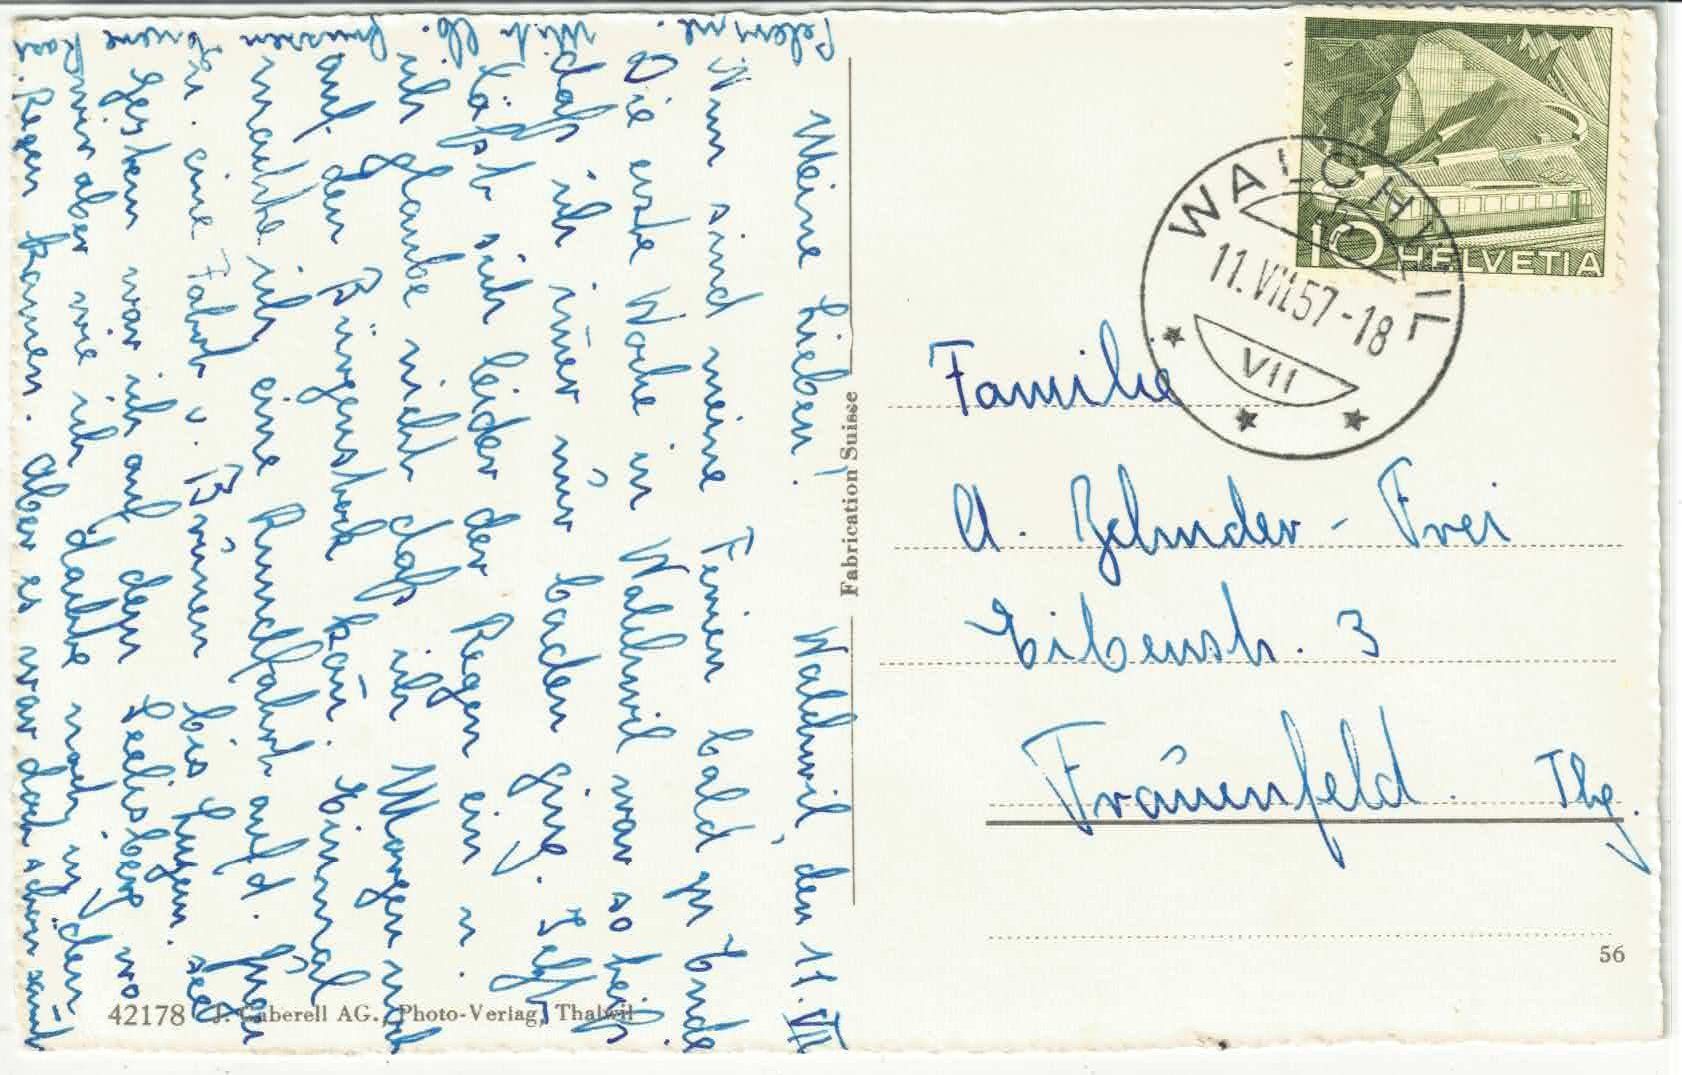 Walchwil, den 11. VII
Meine Lieben!
Nun sind meine Ferien bald zu Ende
Die erste Woche in Walchwil war so heiß
daß ich im̄er nur baden ging. Jetzt
läßt sich leider der Regen ein u.
ich glaube nicht daß ich Morgen noch
auf den Bürgenstock kan̄. Einmal
machte ich eine Rundfahrt auf d. Zuger
see
u. eine Fahrt n. Brunnen bis Luzern.
Gestern war ich auf dem Seelisberg wo
wir aber wie ich dachte noch in den
Regen kamen. Aber es war doch schön
Mit lb. Grüssen Euere Rosi
Familie
A. Zehnder - Frei
Eibenstr. 3
Frauenfeld Thg.
WALCHWIL
11. VII. 57 - 18
VII
10 HELVETIA
Fabrication Suisse
56
42178 J. Gaberell AG., Photo-Verlag, Thalwil